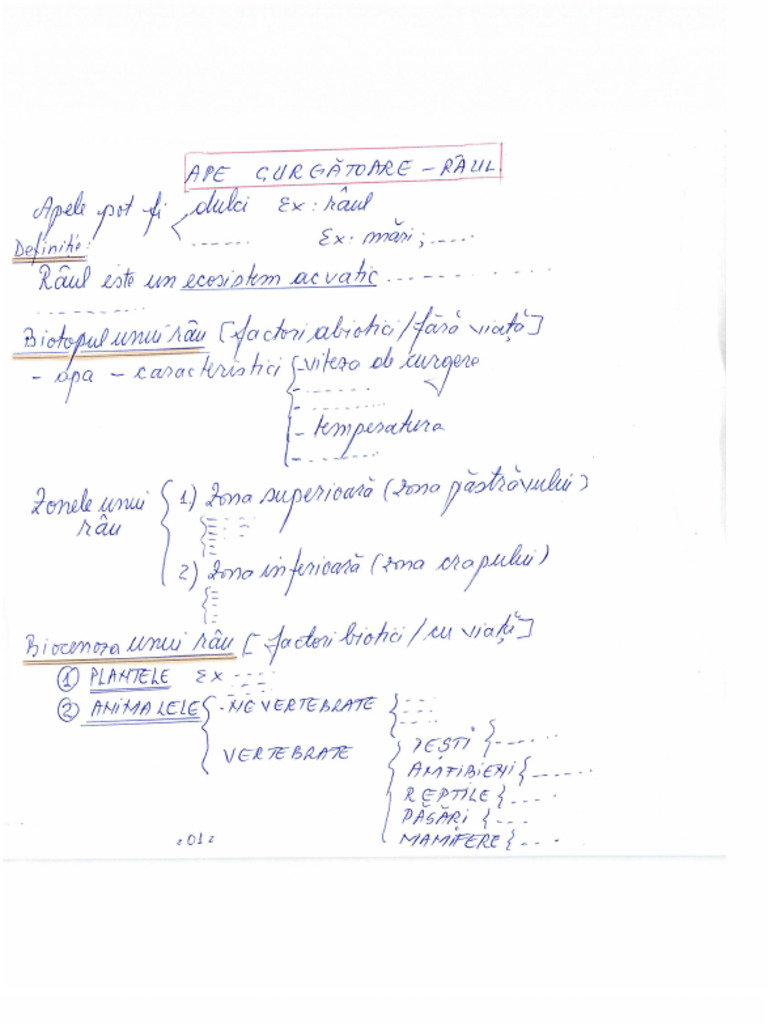 APE CURGĂTOARE – RÂUL
Apele pot fi dulci Ex: râul
...... Ex: mări; ....
Definiție:
Râul este un ecosistem acvatic ..........
..........
Biotopul unui râu [factori abiotici/fără viață]
- apa - caracteristici - viteza de curgere
- .......
- .......
- temperatura
- .......
Zonele unui râu
1) Zona superioară (zona păstrăvului)
2) Zona inferioară (zona crapului)
Biocenoza unui râu [factori biotici/cu viață]
① PLANTELE Ex ....
② ANIMALELE - NEVERTEBRATE
VERTEBRATE
PEȘTI
AMFIBIENI
REPTILE
PĂSĂRI
MAMIFERE
:01: